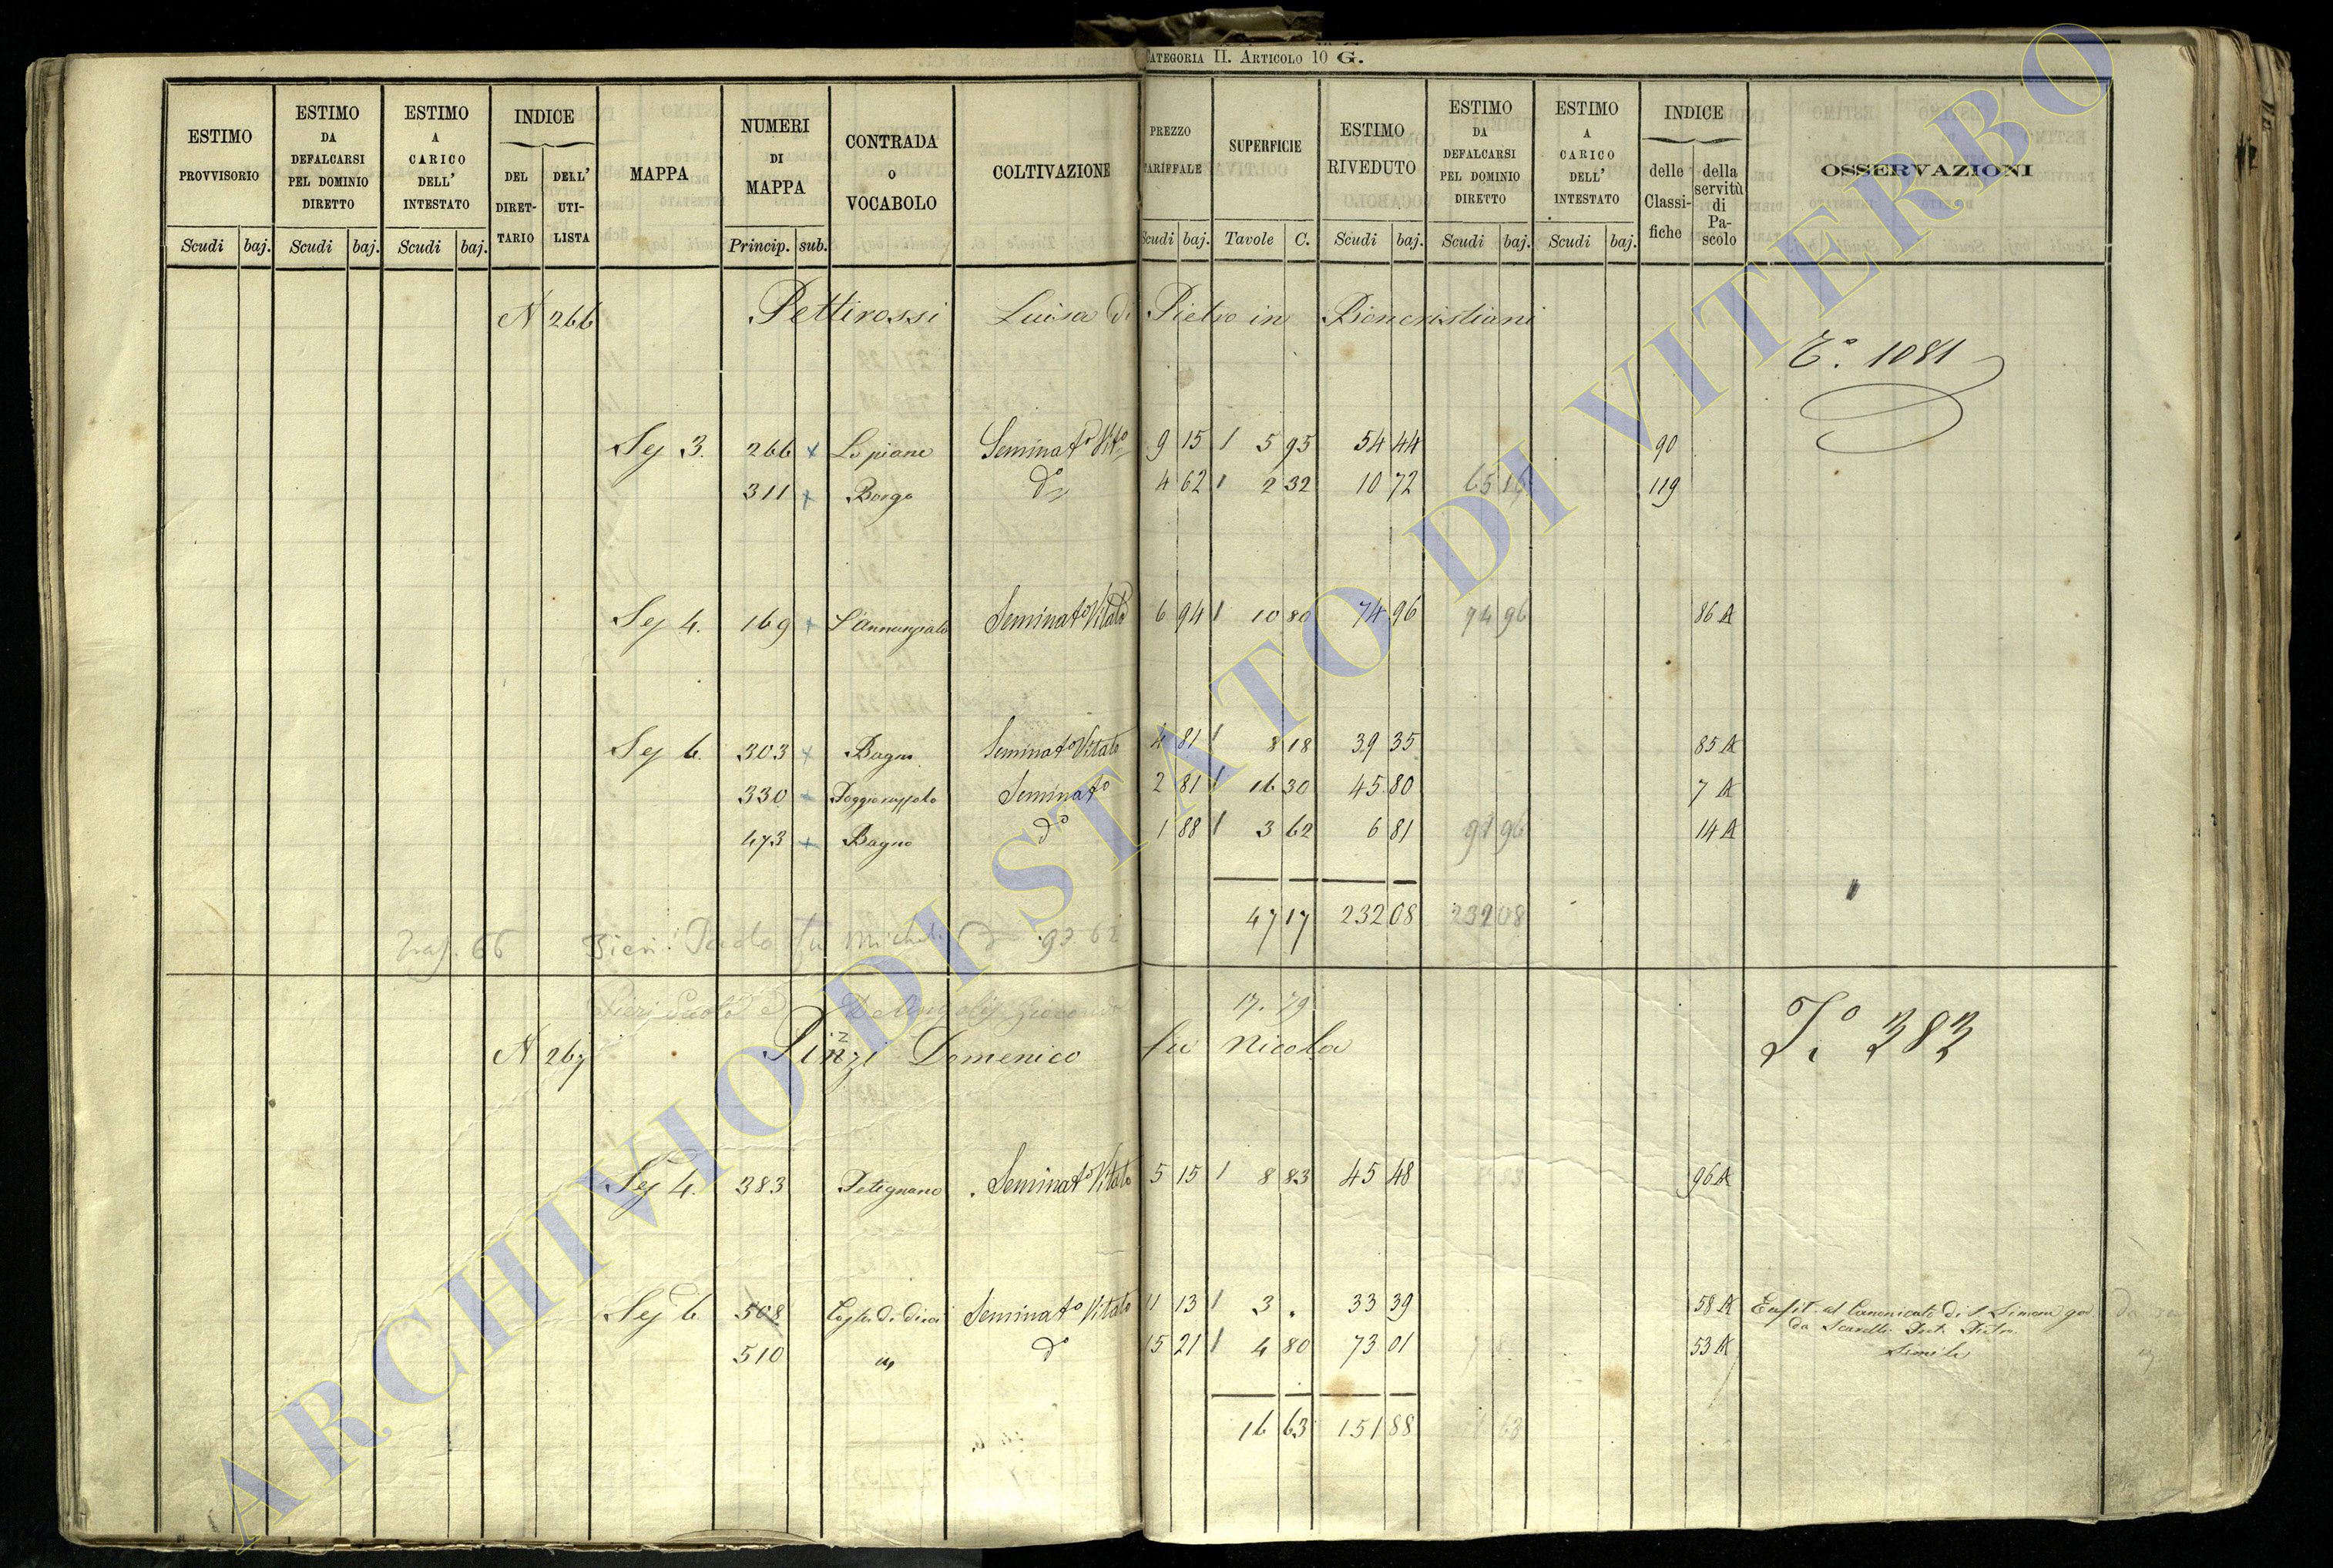 CATEGORIA II. ARTICOLO 10 G.
ESTIMO PROVVISORIO Scudi baj.
ESTIMO DA DEFALCARSI PEL DOMINIO DIRETTO Scudi baj.
ESTIMO A CARICO DELL' INTESTATO Scudi baj.
INDICE DEL DIRET-TARIO DELL' UTI-LISTA
MAPPA
NUMERI DI MAPPA Princip. sub.
CONTRADA O VOCABOLO
COLTIVAZIONE
PREZZO TARIFFALE Scudi baj.
SUPERFICIE Tavole C.
ESTIMO RIVEDUTO Scudi baj.
ESTIMO DA DEFALCARSI PEL DOMINIO DIRETTO Scudi baj.
ESTIMO A CARICO DELL' INTESTATO Scudi baj.
INDICE delle Classi-fiche della servitù di Pa-scolo
OSSERVAZIONI
N 266 Pettirossi Luisa di Pietro in Boncristiani
T.° 1081
Sez 3. 266 x Lo piane Seminat° Vit° 9 15 / 5 95 54 44 90
311 x Borgo d° 4 62 / 2 32 10 72 65 16 119
Sez 4. 169 x S'Annunziata Seminat° Vitato 6 94 / 10 80 74 96 74 96 86 A
Sez 6. 303 x Bagno Seminat° Vitato 4 81 / 8 18 39 35 85 A
330 x Seminat° 2 81 / 16 30 45 80 7 A
473 x Bagno d° 1 88 / 3 62 6 81 91 96 14 A
47 17 232 08 232 08
66 Pieri Paolo fu Michele 93 62
Pieri Paolo De Angelis 17. 79
N 267 Pinzi Domenico fu Nicola
T.° 383
Sez 4. 383 Petignano Seminat° Vitato 5 15 / 8 83 45 48 96 A
Sez 6 508 Seminat° Vitato 11 13 / 3 . 33 39 58 A Enfit. al Canonicato di S. Simone
da Scarelli
510 " d° 15 21 / 4 80 73 01 53 A Simile
16 63 151 88
ARCHIVIO DI STATO DI VITERBO